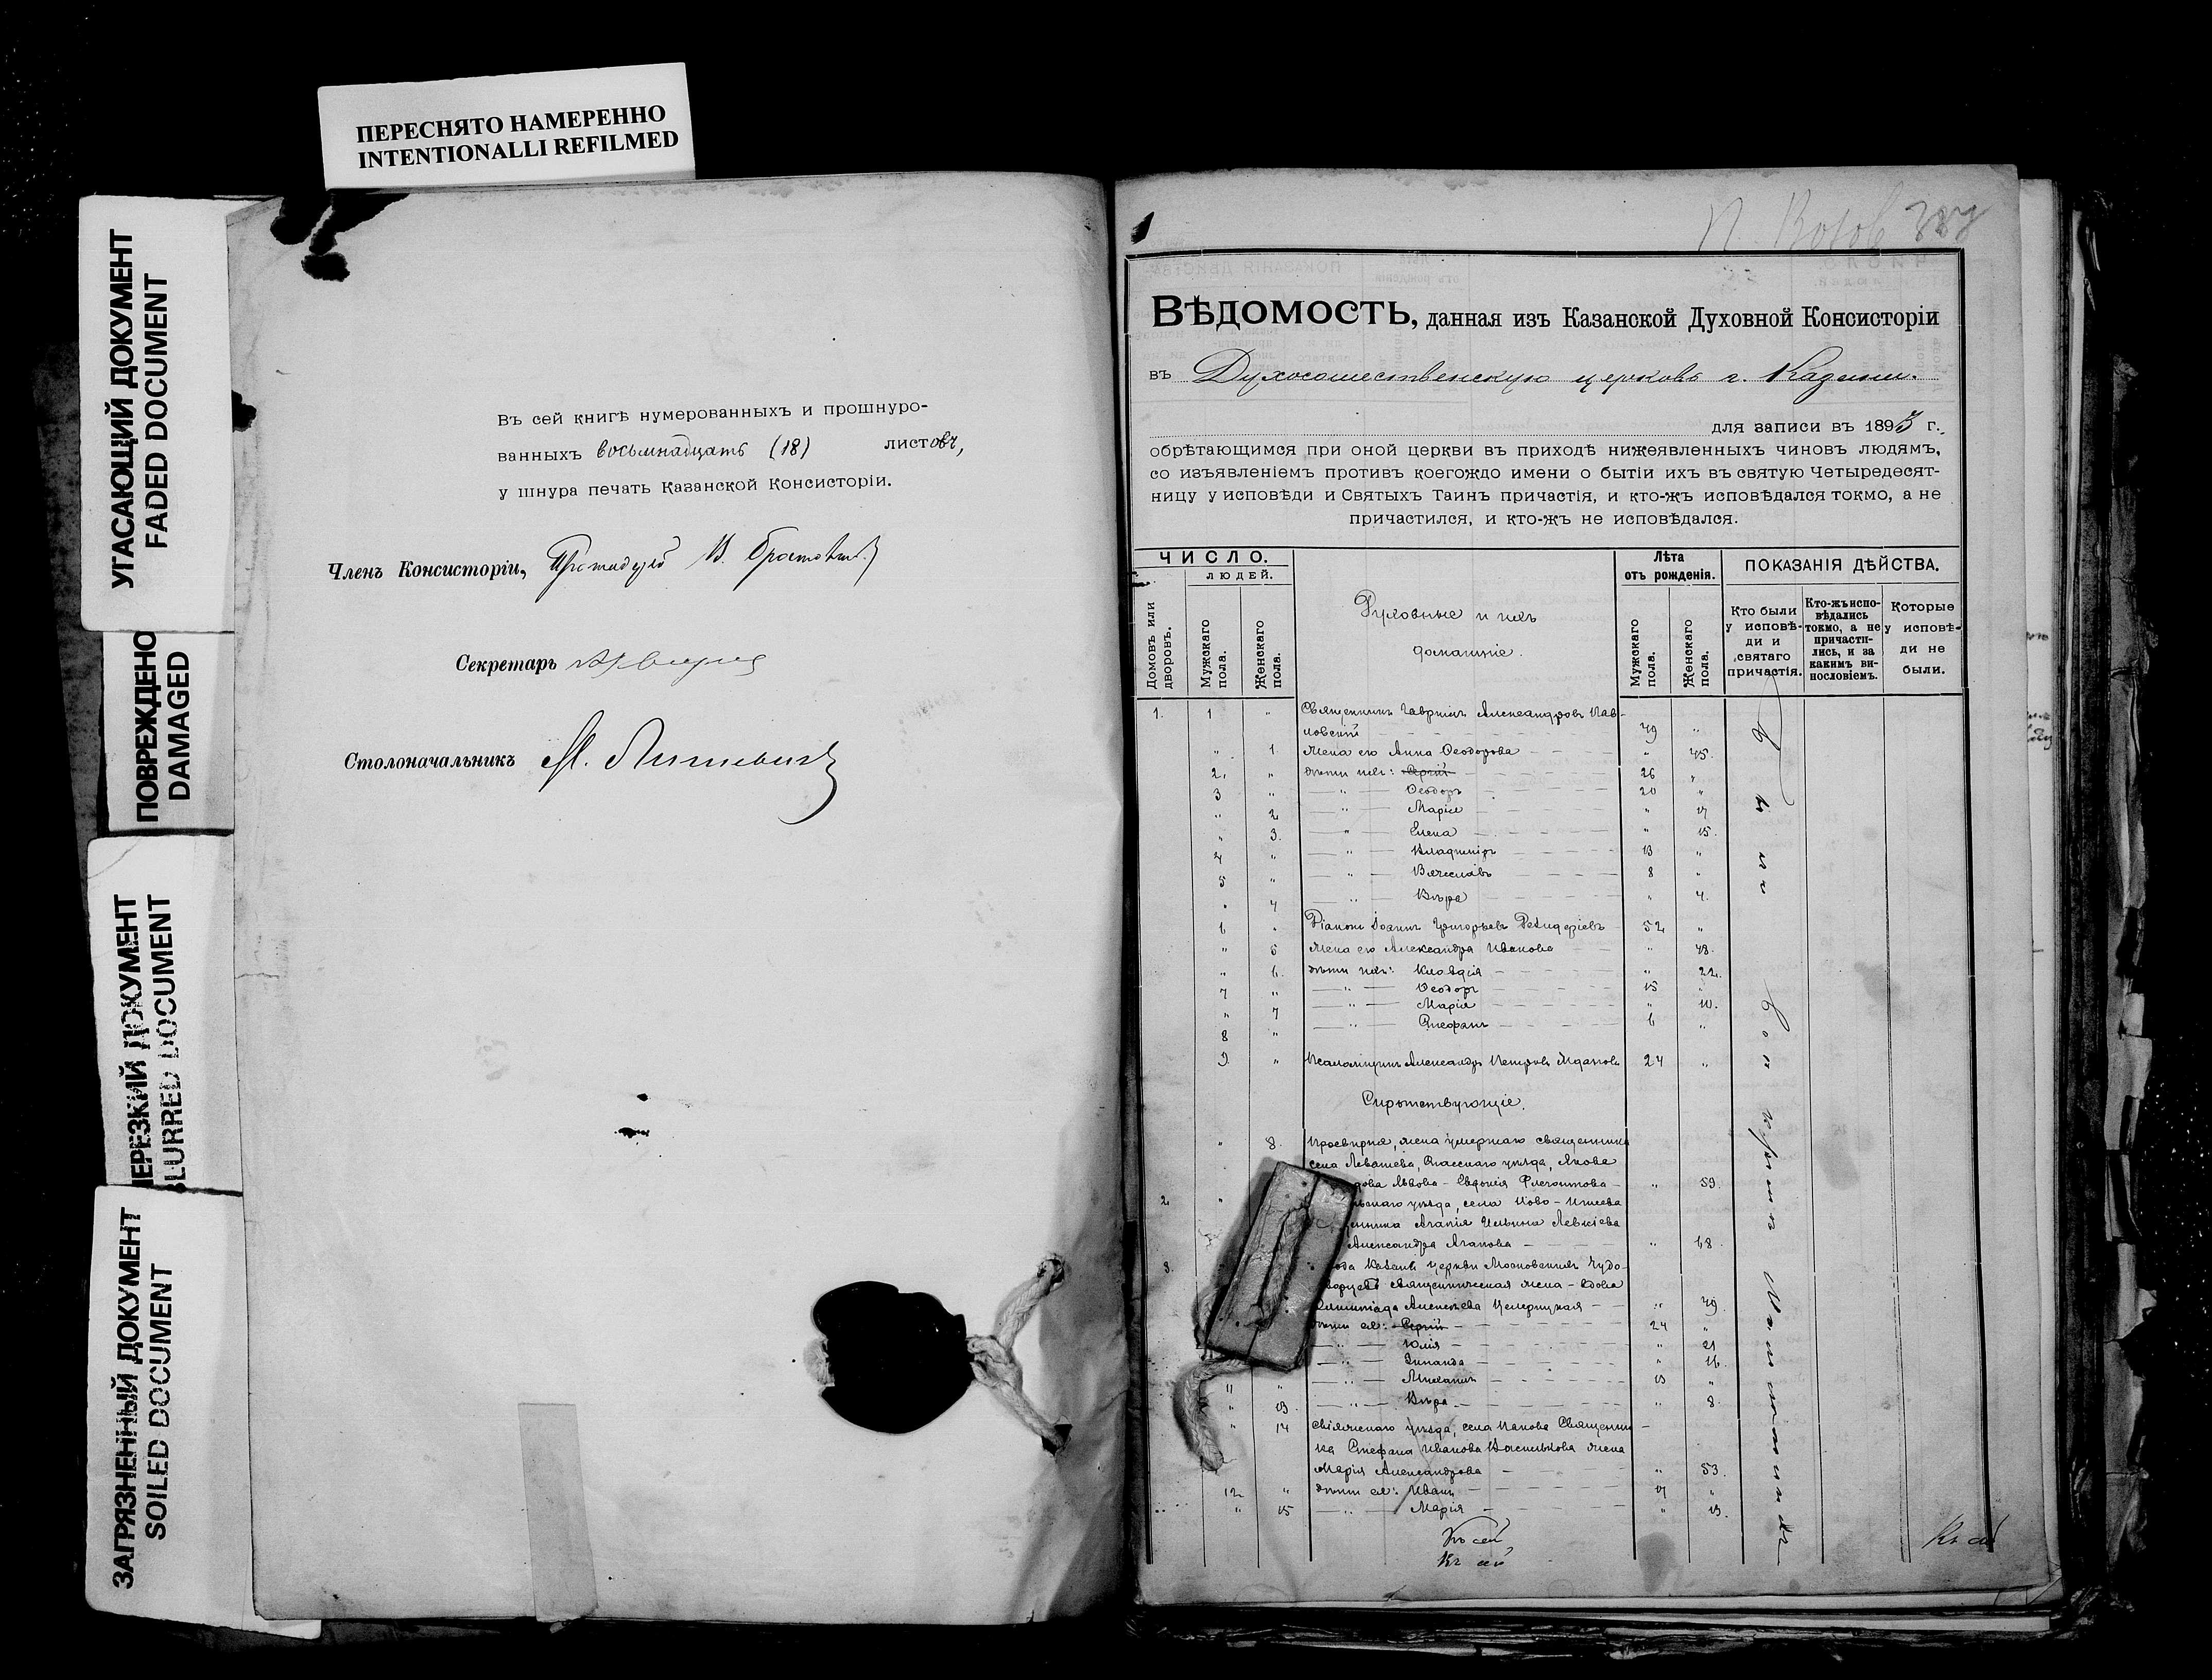 ПЕРЕСНЯТО НАМЕРЕННО
INTENTIONALLI REFILMED
УГАСАЮЩИЙ ДОКУМЕНТ
FADED DOCUMENT
ПОВРЕЖДЕНО
DAMAGED
НЕРЕЗКИЙ ДОКУМЕНТ
BLURRED DOCUMENT
ЗАГРЯЗНЕННЫЙ ДОКУМЕНТ
SOILED DOCUMENT
Въ сей книгѣ нумерованныхъ и прошнуро-
ванныхъ восьмнадцать (18) листовъ,
у шнура печать Казанской Консисторіи.
Членъ Консисторіи, Протоіерей В.
Секретарь
Столоначальникъ М.
ВѢДОМОСТЬ, данная изъ Казанской Духовной Консисторіи
въ Духосошественскую церковь г. Казани.
для записи въ 1893 г.,
обрѣтающимся при оной церкви въ приходѣ нижеявленныхъ чиновъ людямъ,
со изъявленіемъ противъ коегождо имени о бытіи ихъ въ святую Четыредесят-
ницу у исповѣди и Святыхъ Таинъ причастія, и кто-жъ исповѣдался токмо, а не
причастился, и кто-жъ не исповѣдался.
ЧИСЛО.
людей.
Домовъ или дворовъ.
Мужскаго пола.
Женскаго пола.
Духовные и ихъ
домашніе.
Лѣта
отъ рожденія.
Мужскаго пола.
Женскаго пола.
ПОКАЗАНІЯ ДѢЙСТВА.
Кто были у исповѣ-ди и святаго причастія.
Кто-жъ испо-вѣдались токмо, а не причасти-лись, и за какимъ ви-нословіемъ.
Которые у исповѣ-ди не были.
1. 1 " Священникъ Гавріилъ Александровъ Пав-
ловскій 49 "
" 1 Жена его Анна Ѳеодорова " 45.
2. " дѣти ихъ: Сергій 26 "
3 " " Ѳеодоръ 20 "
" 2 " Марія " 17
" 3. " Елена " 15.
4 " " Владиміръ 13 "
5 " " Вячеславъ 8 "
" 4 " Вѣра " 4.
6 " Діаконъ Іоаннъ Григорьевъ Дезидеріевъ 52 "
" 5 Жена его Александра Иванова " 48.
" 6. дѣти ихъ: Клавдія " 22.
7 " " Ѳеодоръ 15 "
" 7 " Марія " 10.
8 " " Стефанъ 6 "
9. " Псаломщикъ Александръ Петровъ Ждановъ 24 "
Сиротствующіе.
" 8. Просвирня, жена умершаго священника
села Левашева, Спасскаго уѣзда, Якова
Львова - Евдокія Флегонтова " 59.
2 " уѣзда, села Ново-
Агапія Ильина
Александра Агапова " 68
3. Казани церкви Московскихъ Чудо-
священническая жена - вдова
Олимпіада Алексѣева " 49.
дѣти ея: Сергій 24 "
" Юлія " 21
" Зинаида " 16.
11 " " Михаилъ 13 "
" 13. " Вѣра " 8.
" 14 Свіяжскаго уѣзда, села Священни-
ка Стефана Иванова Василькова жена
Марія Александрова " 53.
12 " дѣти ея: Иванъ 17 "
" 15 " Марія " 13.